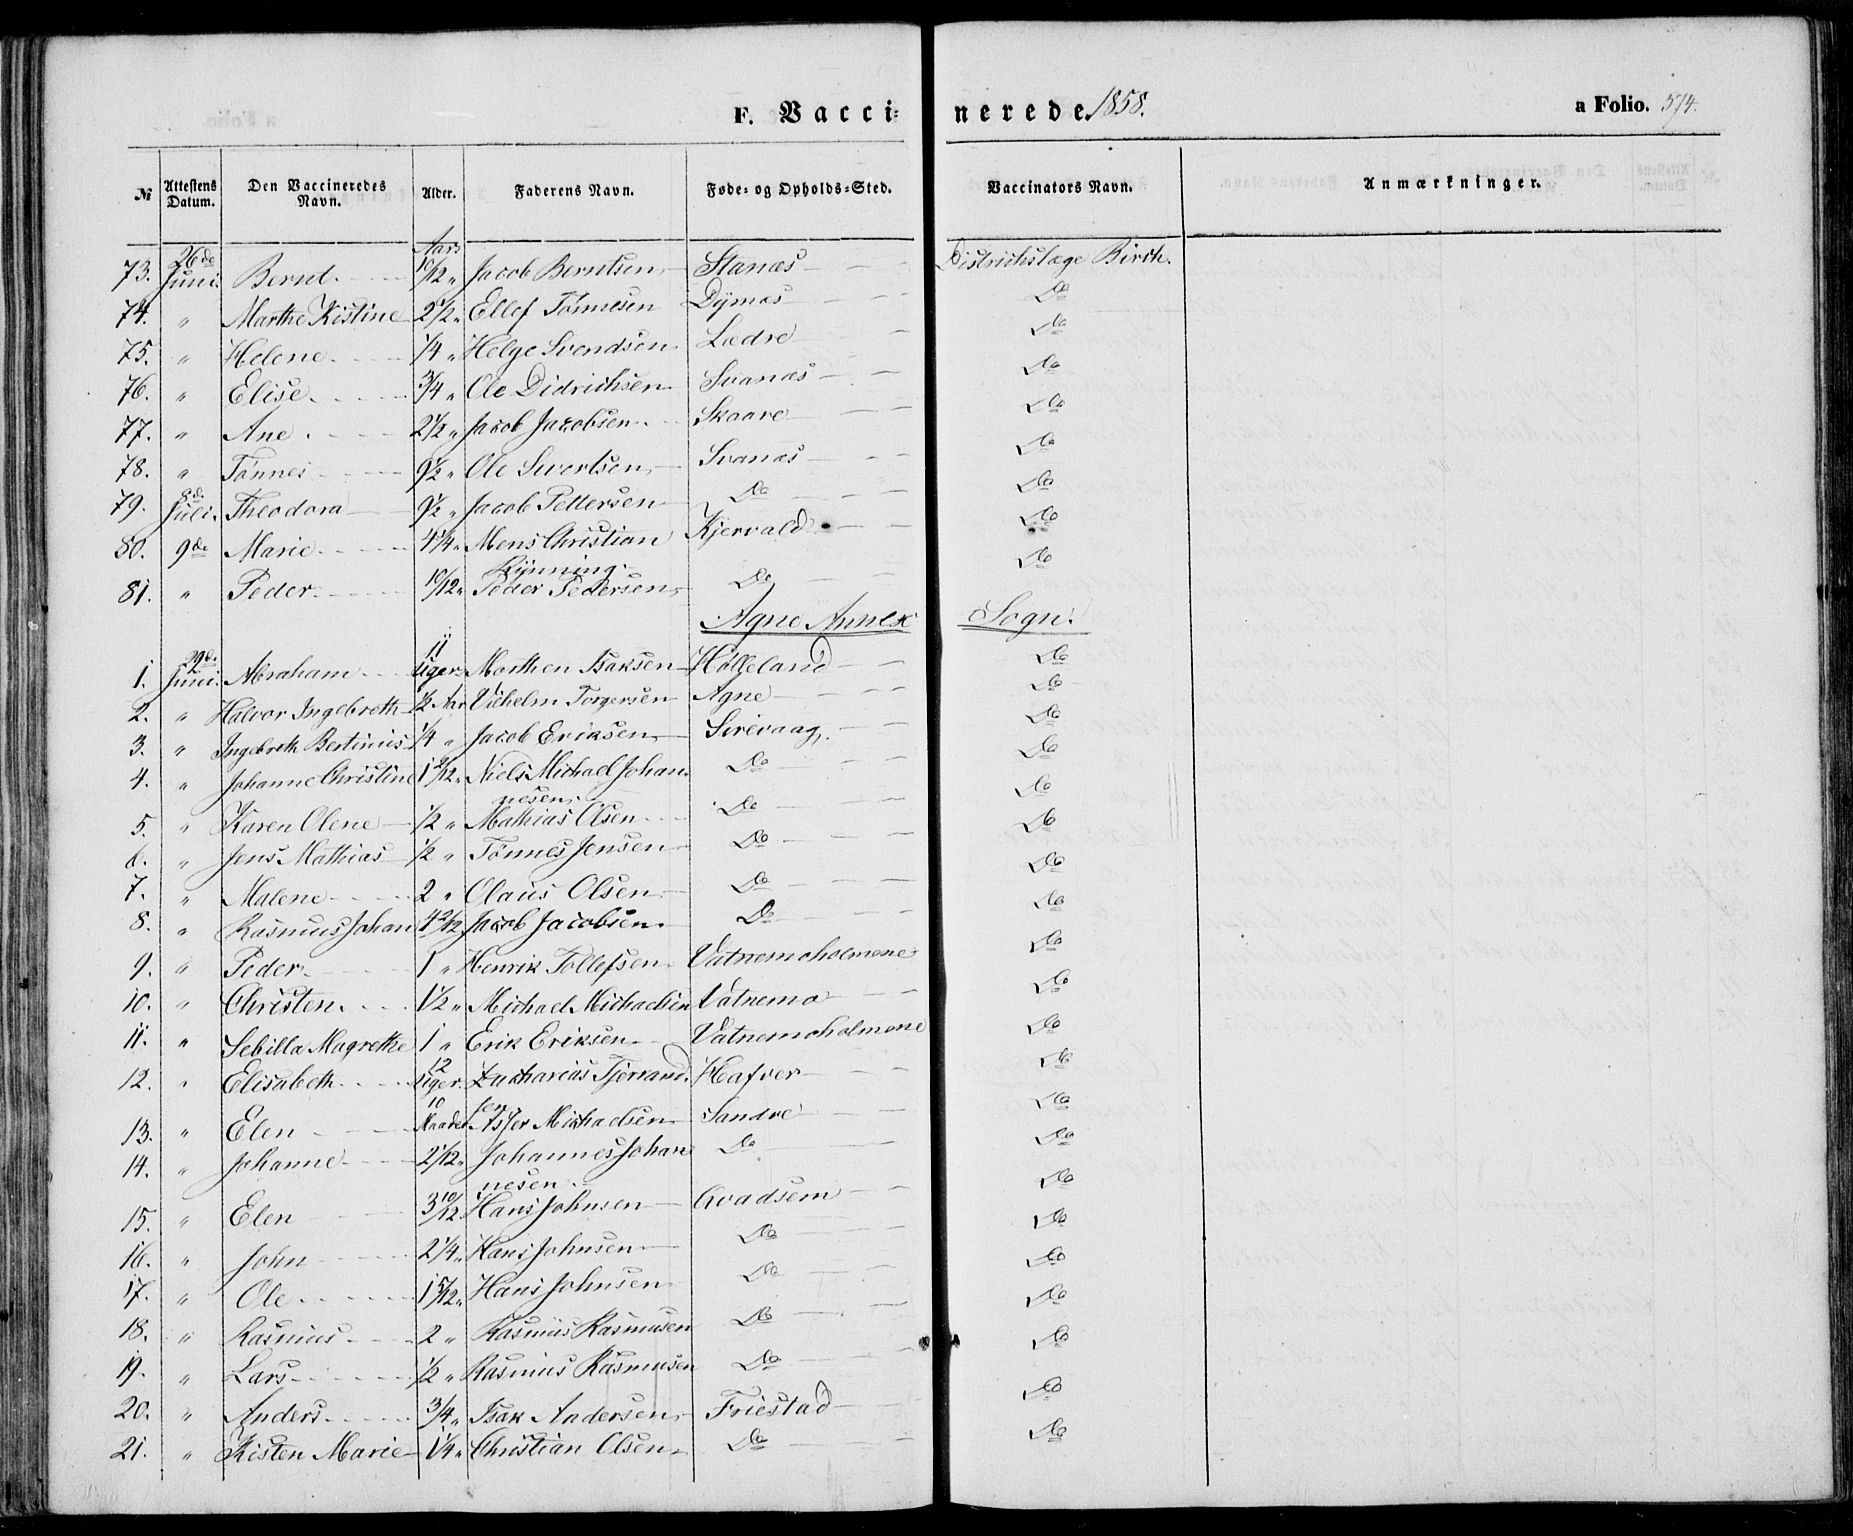 F. Vacci= nerede. 1858. a Folio. 574.
№ Attestens Datum. Den Vaccineredes Navn. Alder. Faderens Navn. Føde- og Opholds-Sted. Vaccinators Navn. Anmærkninger.
Aars
73. 26de Juni. Bernt. 10/12 " Jacob Berntsen Stanæs Districtslæge Birch.
74. " Marthe Kistine 2 1/2 " Ellef Tønnesen Dÿnæs Do
75. " Helene 1/4 " Helge Svendsen Lædre Do
76. " Elise. 3/4 " Ole Didrichsen Svanæs Do
77. " Ane. 2 1/2 " Jacob Jacobsen Skaare Do
78. " Tønnes 9 1/2 " Ole Sivertsen Svanæs Do
79. 8d. Juli. Theodora 9 1/2 " Jacob Pettersen Do Do
80. 9de Marie 4 1/4 " Mons Christian Kjervald Do
Rÿnning.
81. " Peder. 10/12 " Peder Pedersen Do Do
Agne Annex Sogn.
1. 29d. Juni. Abraham 11 Uger Morthen Isaksen Hølleland Do
2. " Halvor Ingebreth 1/2 Aar Vilhelm Torgersen Agne Do
3. " Ingebreth Bertinius 1/4 " Jacob Eriksen Sirevaag. Do
4. " Johanne Christine 1 2/12 " Niels Michael Johan Do Do
nesen.
5. " Karen Olene 1/2 " Mathias Olsen Do Do
6. " Jens Mathias 1/2 " Tønnes Jensen Do Do
7. " Malene 2 " Olaus Olsen Do Do
8. " Rasmus Johan 4 2/12 Jacob Jacobsen Do Do
9. " Peder 1 " Henrik Tollefsen Vatnemoholmene Do
10. " Christen. 1 1/2 " Michael Michaelsen Vatnemo Do
11. " Sebilla Magrethe 1 " Erik Eriksen Vatnemoholmene Do
12. " Elisabeth 12 Uger. Zacharias Tjerrand Hafver Do
sen
13. " Elen 10 Maader Asser Michaelsen Sandre Do
14. " Johanne 2 1/12 " Johannes Johan Do Do
nesen
15. " Elen 3 10/12 Hans Johnsen Qvadsem Do
16. " John 2 1/4 " Hans Johnsen Do Do
17. " Ole 1 5/12 " Hans Johnsen Do Do
18. " Rasmus 2 " Rasmus Rasmusen Do Do
19. " Lars 1/2 " Rasmus Rasmusen Do Do
20. " Anders 3/4 " Isak Andersen Friestad Do
21. " Kisten Marie 1 1/4 " Christian Olsen Do Do